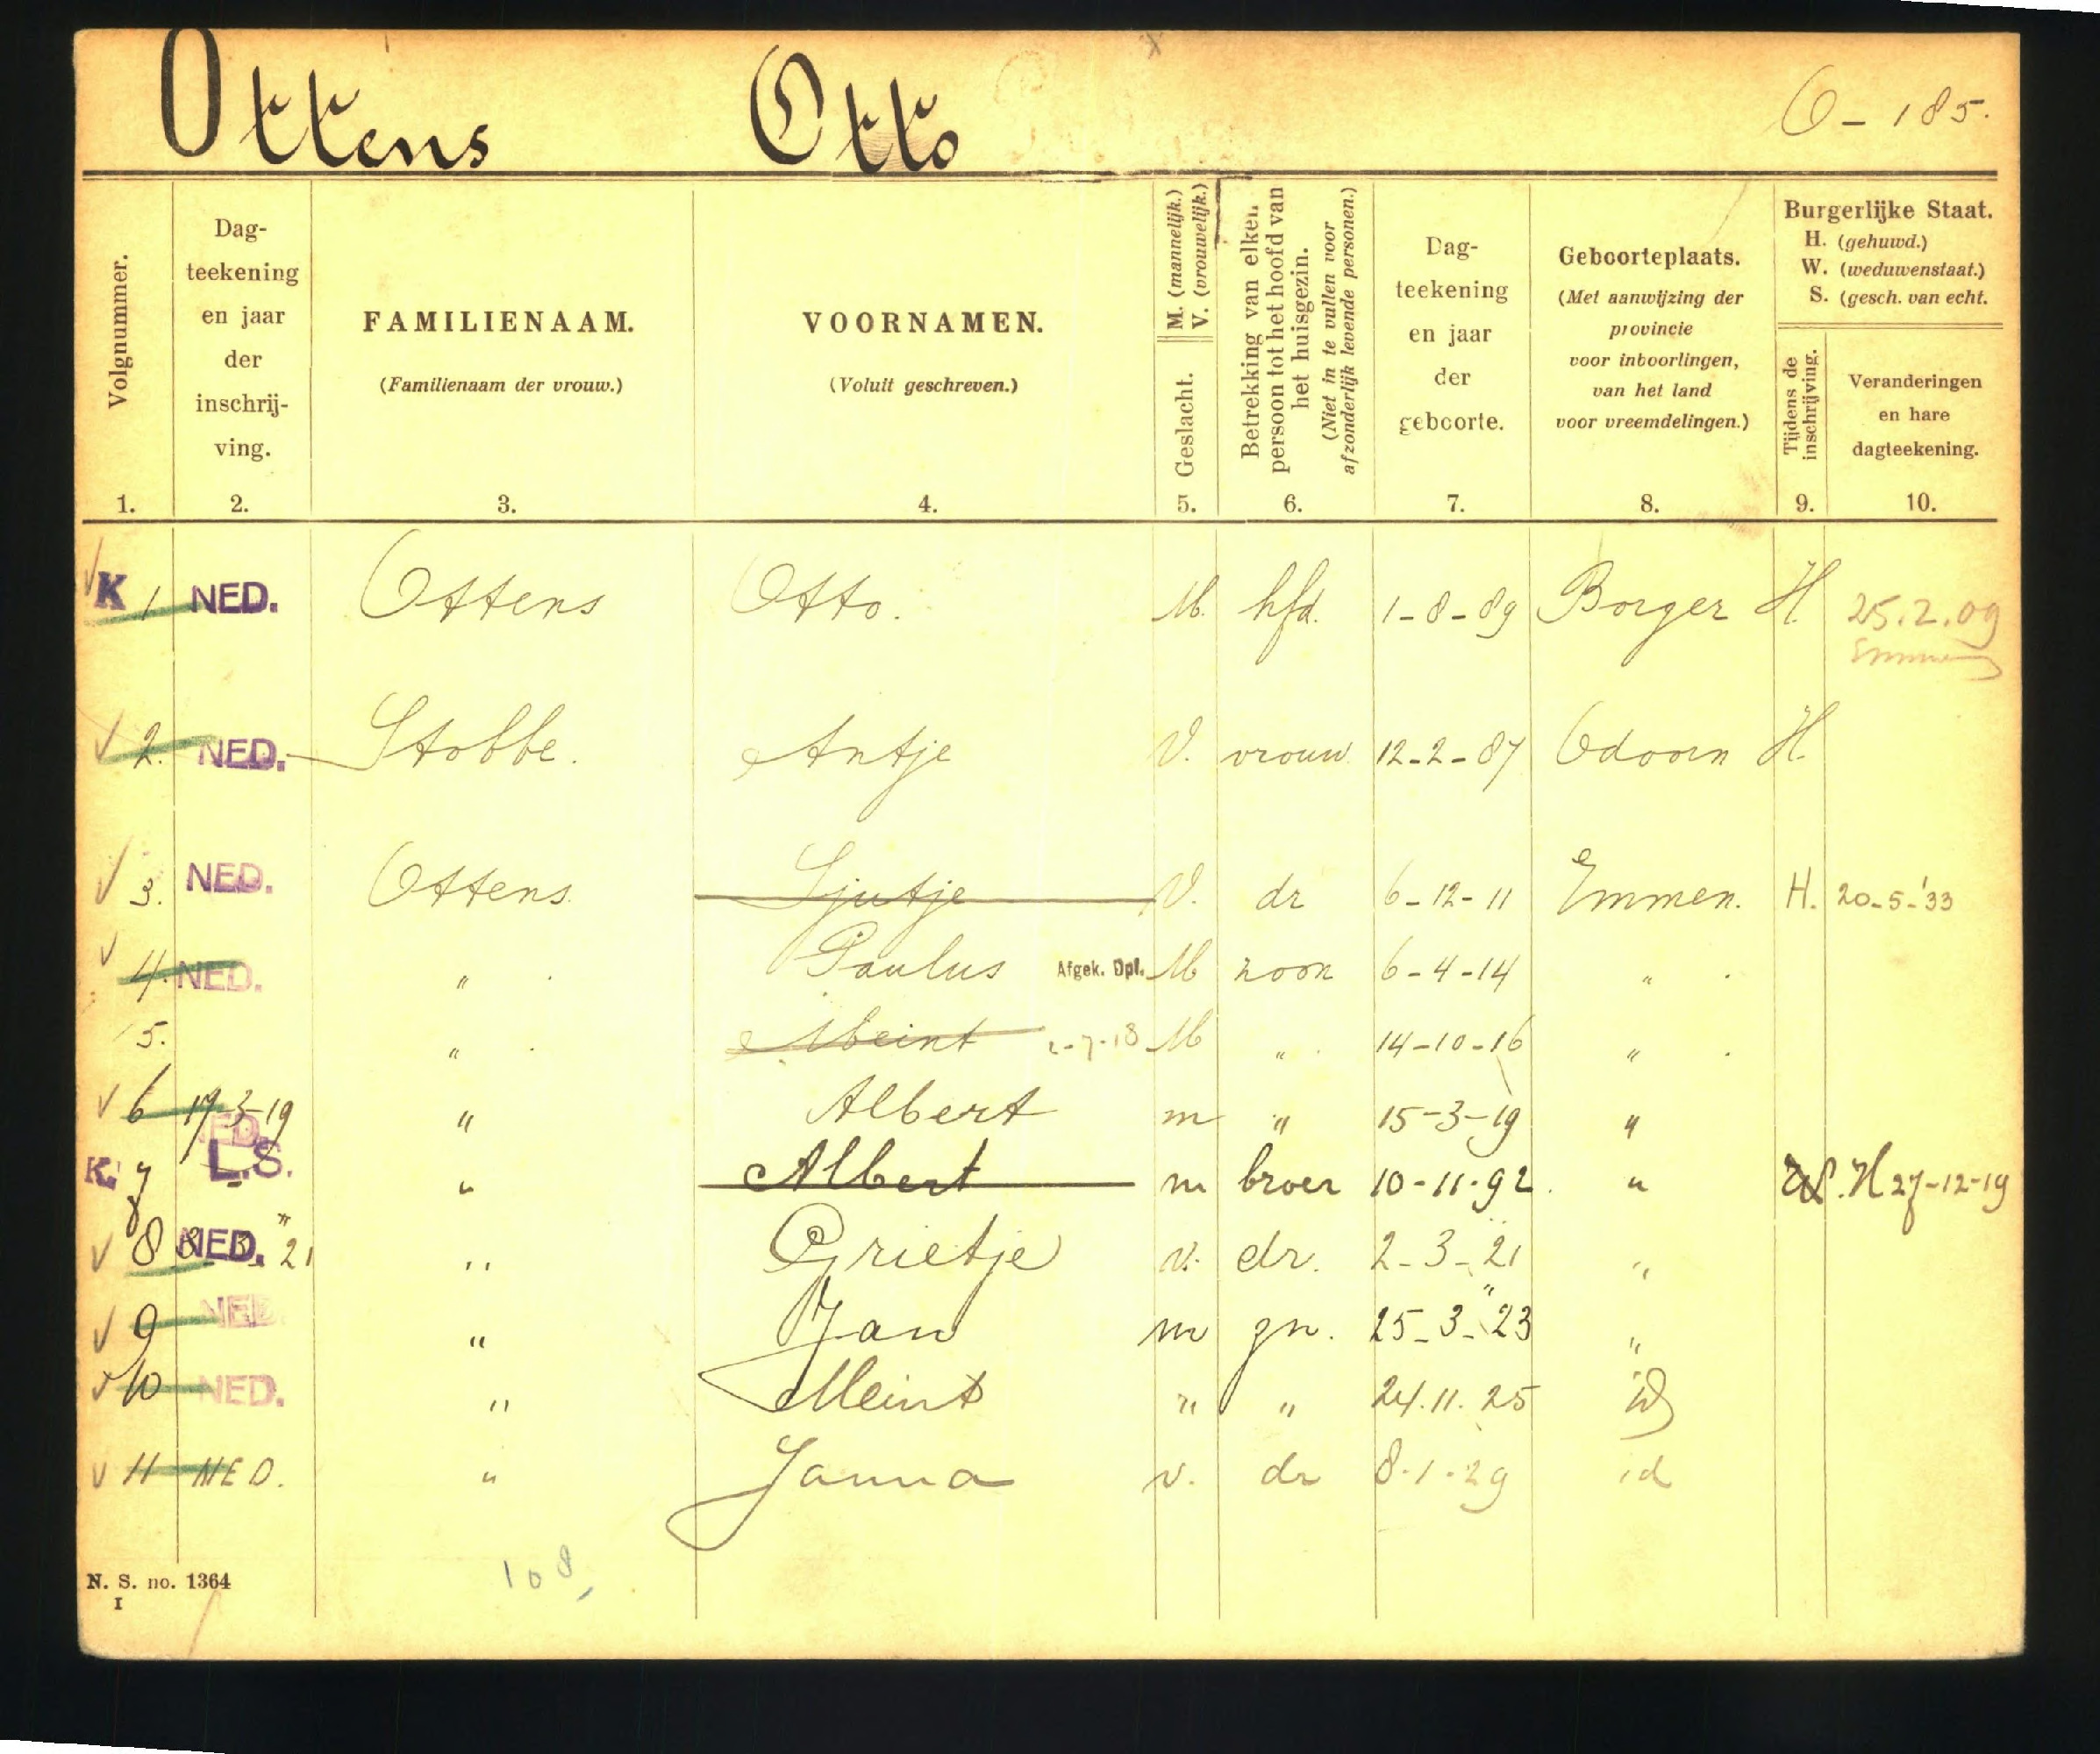 Ottens Otto O-185.
Volgnummer.
1.
Dag-
teekening
en jaar
der
inschrij-
ving.
2.
FAMILIENAAM.
(Familienaam der vrouw.)
3.
VOORNAMEN.
(Voluit geschreven.)
4.
Geslacht. M. (mannelijk.)
V. (vrouwelijk.)
5.
Betrekking van elken
persoon tot het hoofd van
het huisgezin.
(Niet in te vullen voor
afzonderlijk levende personen.)
6.
Dag-
teekening
en jaar
der
geboorte.
7.
Geboorteplaats.
(Met aanwijzing der
provincie
voor inboorlingen,
van het land
voor vreemdelingen.)
8.
Burgerlijke Staat.
H. (gehuwd.)
W. (weduwenstaat.)
S. (gesch. van echt.
Tijdens de
inschrijving.
9.
Veranderingen
en hare
dagteekening.
10.
K 1 NED. Ottens Otto. M. hfd. 1-8-89 Borger H. 25.2.09
Emmen
2. NED. Stobbe. Antje V. vrouw 12-2-87 Odoorn H.
3. NED. Ottens. V. dr 6-12-11 Emmen. H. 20-5-'33
4. NED. " Paulus Afgek. Dpl. M zoon 6-4-14 "
5. " Meint 2-7-18 M " 14-10-16 "
6 17-3-19 NED. " Albert m " 15-3-19 "
K. 7 L.S. " Albert m broer 10-11-92. " W. H 27-12-19
8 NED. 21 " Grietje v. dr. 2-3-21 "
9 NED. " Jan m zn. 25-3-23 "
10 NED. " Meint " " 24.11.25 id
11 NED. " Janna v. dr 8.1.29 id
N. S. no. 1364
I
108